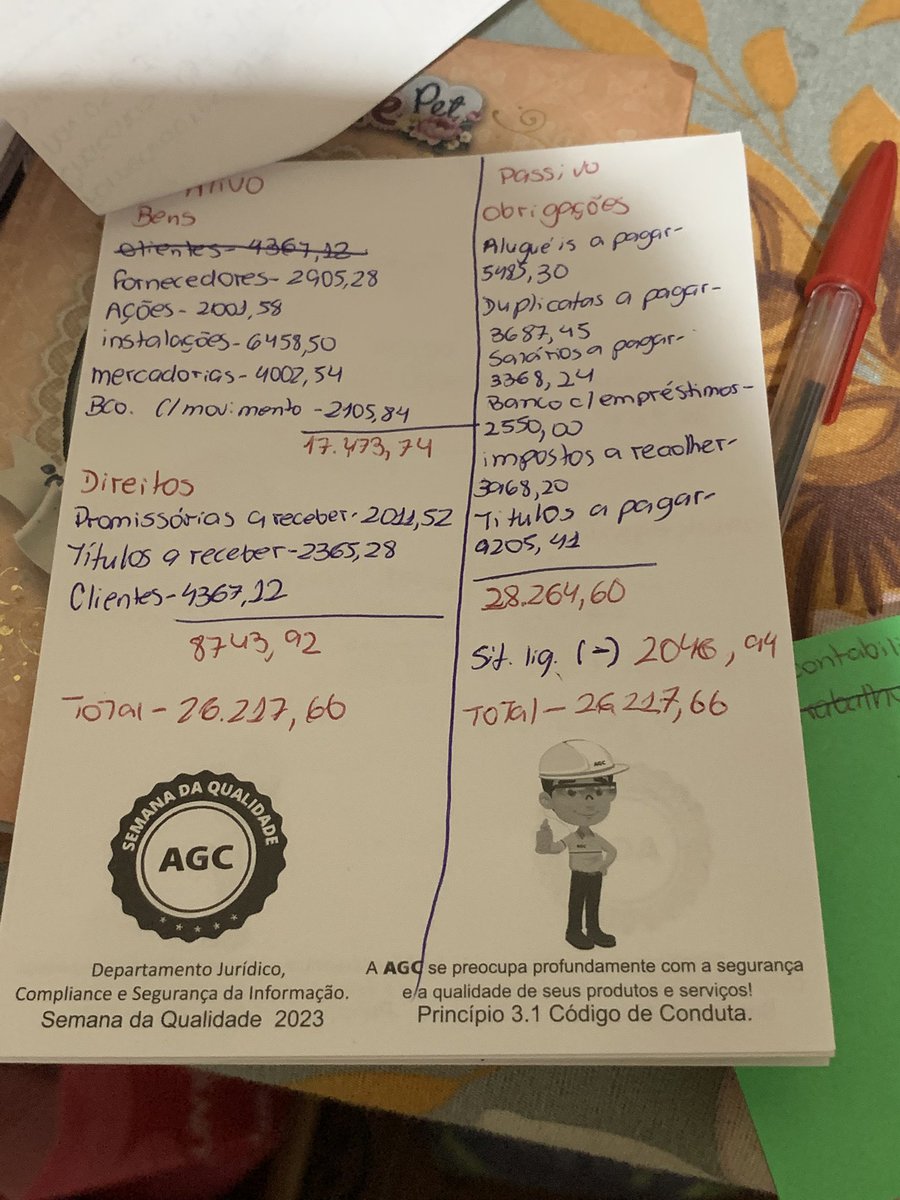 Pet
Ativo
Bens
Clientes - 4367,12
Fornecedores - 2905,28
Ações - 2001,58
instalações - 6458,50
mercadorias - 4002,54
Bco. C/movimento - 2105,84
17.473,74
Direitos
Promissórias a receber - 2011,52
Títulos a receber - 2365,28
Clientes - 4367,12
8743,92
Total - 26.217,66
Passivo
Obrigações
Aluguéis a pagar -
5485,30
Duplicatas a pagar -
3687,45
Salários a pagar -
3368,24
Banco c/ empréstimos -
2550,00
impostos a recolher -
3968,20
Títulos a pagar -
9205,41
28.264,60
Sit. liq. (-) 2046,94
Total - 26.217,66
SEMANA DA QUALIDADE
AGC
Departamento Jurídico,
Compliance e Segurança da Informação.
Semana da Qualidade 2023
AGC
AGC
A AGC se preocupa profundamente com a segurança
e a qualidade de seus produtos e serviços!
Princípio 3.1 Código de Conduta.